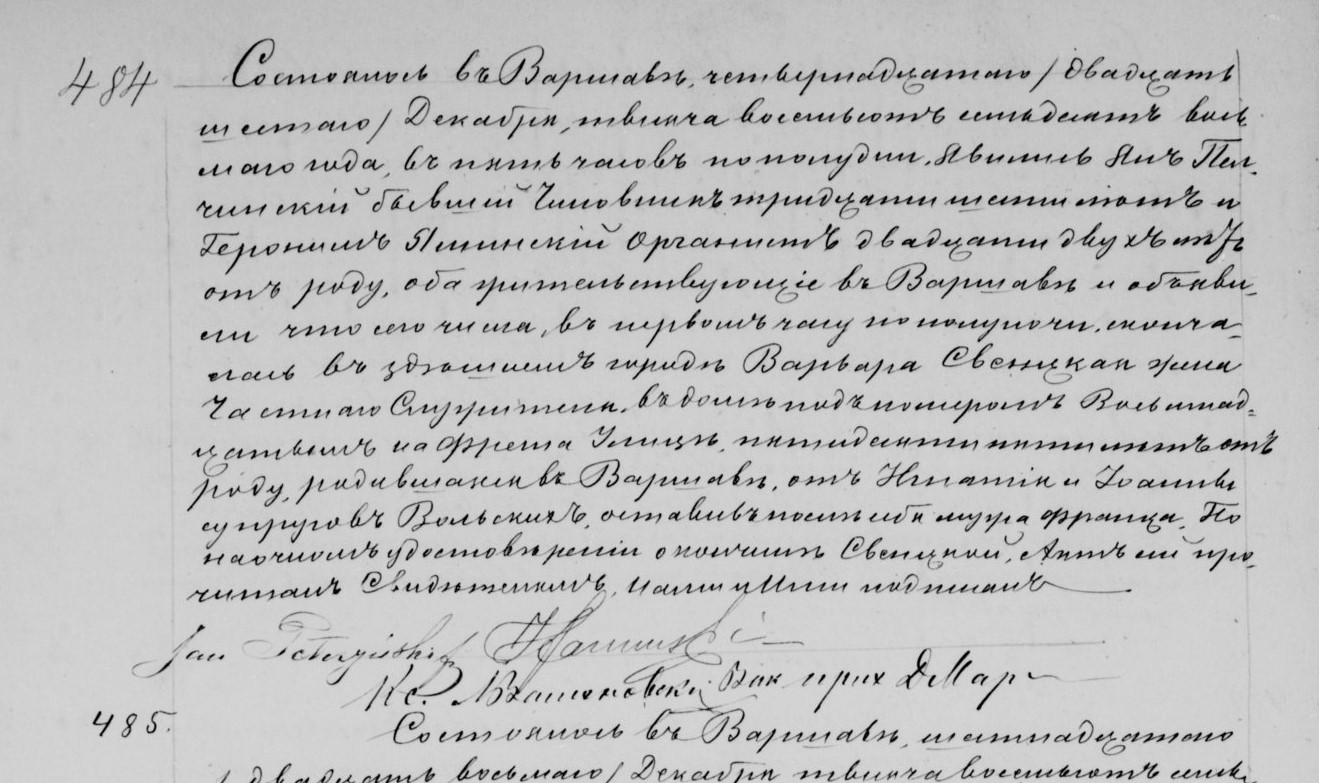 484 Состоялось въ Варшавѣ, четырнадцатаго / двадцать
шестаго / Декабря, тысяча восемьсотъ семьдесятъ вось
маго года, въ пять часовъ по полудни. Явились Янъ Пел-
чинскій бывшій Чиновникъ тридцати шести лѣтъ и
Геронимъ Ясинскій Органистъ двадцати двухъ лѣтъ
отъ роду, оба жительствующіе въ Варшавѣ и объяви-
ли что сего числа, въ первомъ часу по полуночи, сконча-
лась въ здѣшнемъ городѣ Варвара Свенцкая жена
Частнаго Служителя, въ домѣ подъ номеромъ Восемнад=
цатымъ на Фрета Улицѣ, пятидесяти пяти лѣтъ отъ
роду, родившаяся въ Варшавѣ, отъ Игнатія и Іоанны
супруговъ Вольскихъ, оставивъ послѣ себя мужа Франца. По
наочномъ удостовѣреніи о кончинѣ Свенцкой, Актъ сей про-
читанъ Свидѣтелямъ, Нами и Ими подписанъ
Jan
Кс. Вик прих Д Мар
485. Состоялось въ Варшавѣ, шестнадцатаго
/ двадцать восьмаго / Декабря тысяча восемьсотъ семь